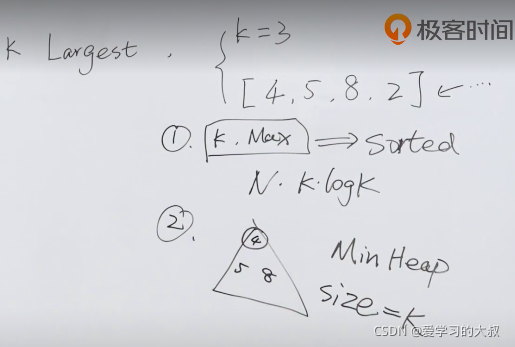 极客时间
K Largest. k = 3
[4, 5, 8, 2] ← ....
①. K. Max ⇒ Sorted
N · K · logK
②. 4
5 8
Min Heap
size = K
CSDN @爱学习的大叔